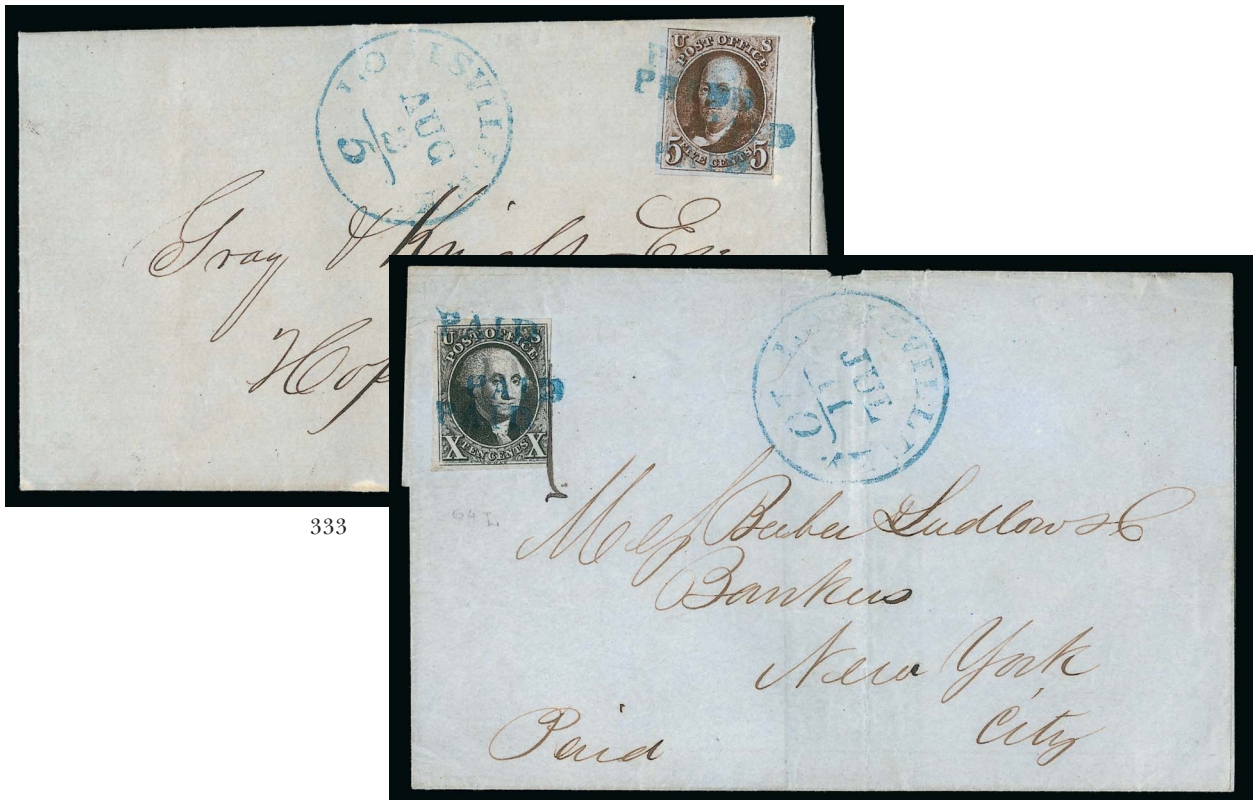 LOUISVILLE KY
AUG
3
5
PAID
U S
POST OFFICE
5 FIVE CENTS 5
Gray & Knight Esq
Hop
333
PAID
PAID
U S
POST OFFICE
X TEN CENTS X
LOUISVILLE KY
JUL
11
10
64L
Mess Beebee Ludlow & C
Bankers
New York
City
Paid